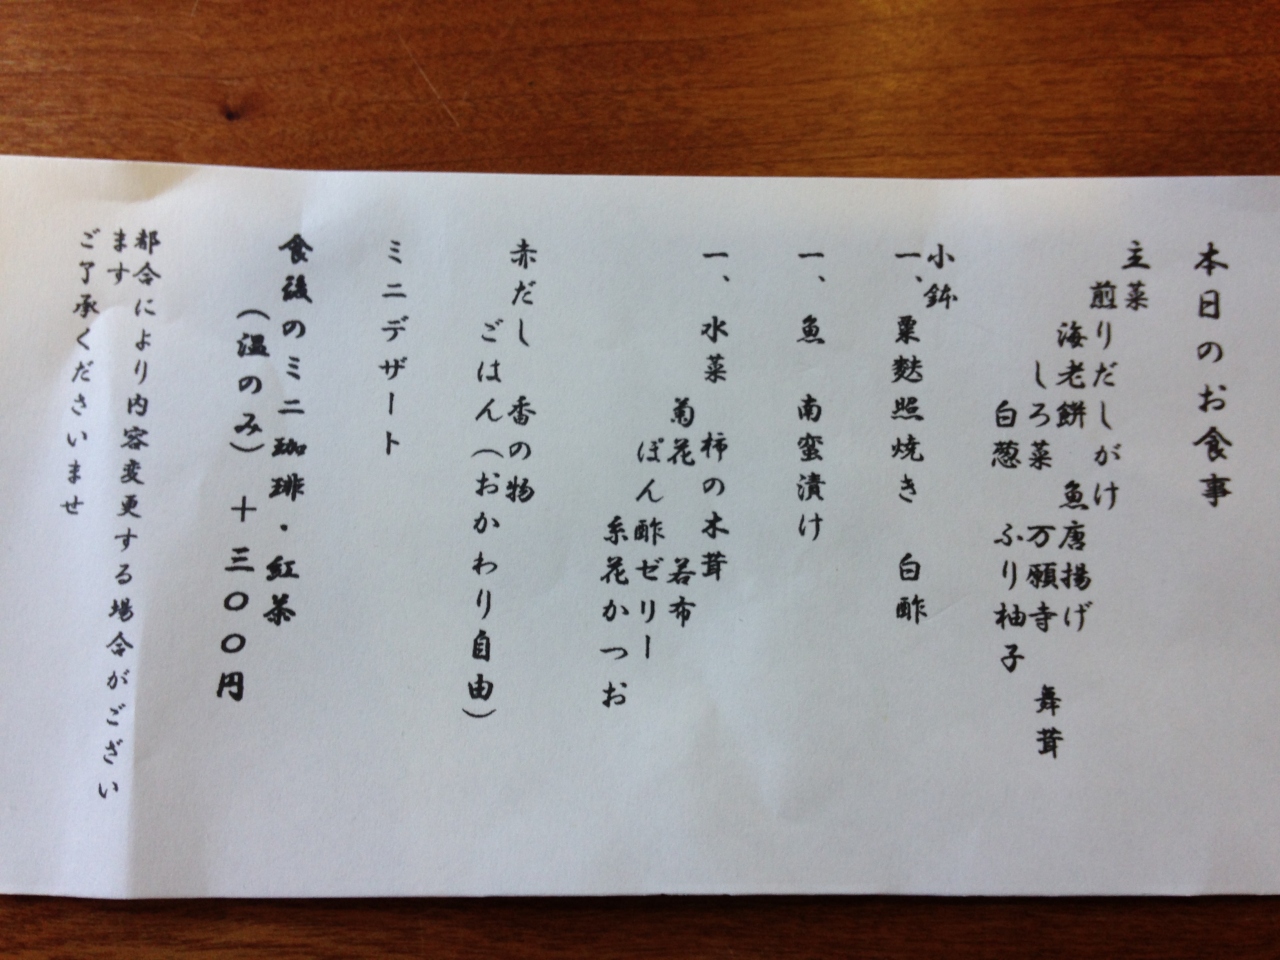 本日のお食事
主菜
煎りだしがけ
海老餅　魚唐揚げ
しろ菜　万願寺　舞茸
白葱　ふり柚子
小鉢
一、粟麩照焼き　白酢
一、魚　南蛮漬け
一、水菜　柿の木茸
菊花　若布
ぽん酢ゼリー
糸花かつお
赤だし　香の物
ごはん（おかわり自由）
ミニデザート
食後のミニ珈琲・紅茶
（温のみ）　＋三〇〇円
都合により内容変更する場合がござい
ます
ご了承くださいませ